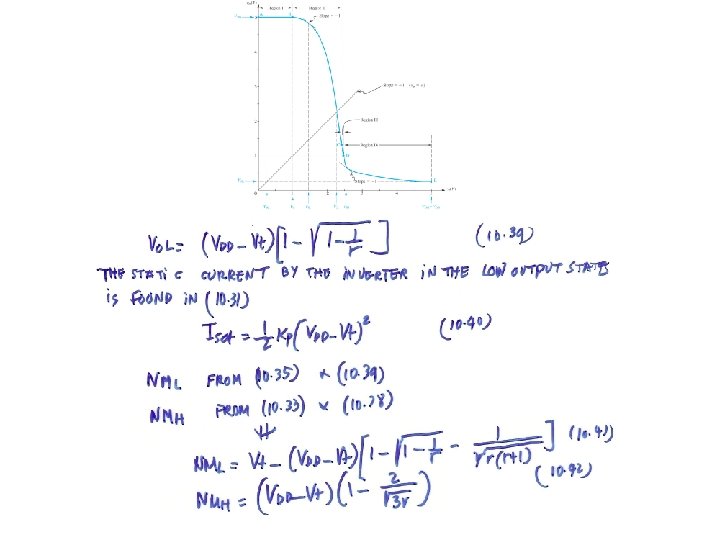 Region I
Region II
Slope = −1
Region III
Region IV
Slope = −1
V_OL = (V_DD − Vt)[1 − √(1 − 1/r)] (10.39)
THE STATIC CURRENT BY THE INVERTER IN THE LOW OUTPUT STATE
IS FOUND IN (10.31)
I_sat = 1/2 Kp (V_DD − Vt)² (10.40)
NML FROM (10.35) & (10.39)
NMH FROM (10.33) & (10.38)
⇓
NML = Vt − (V_DD − Vt)[1 − √(1 − 1/r) − 1/√(r(r+1))] (10.41)
NMH = (V_DD − Vt)(1 − 2/√(3r)) (10.42)